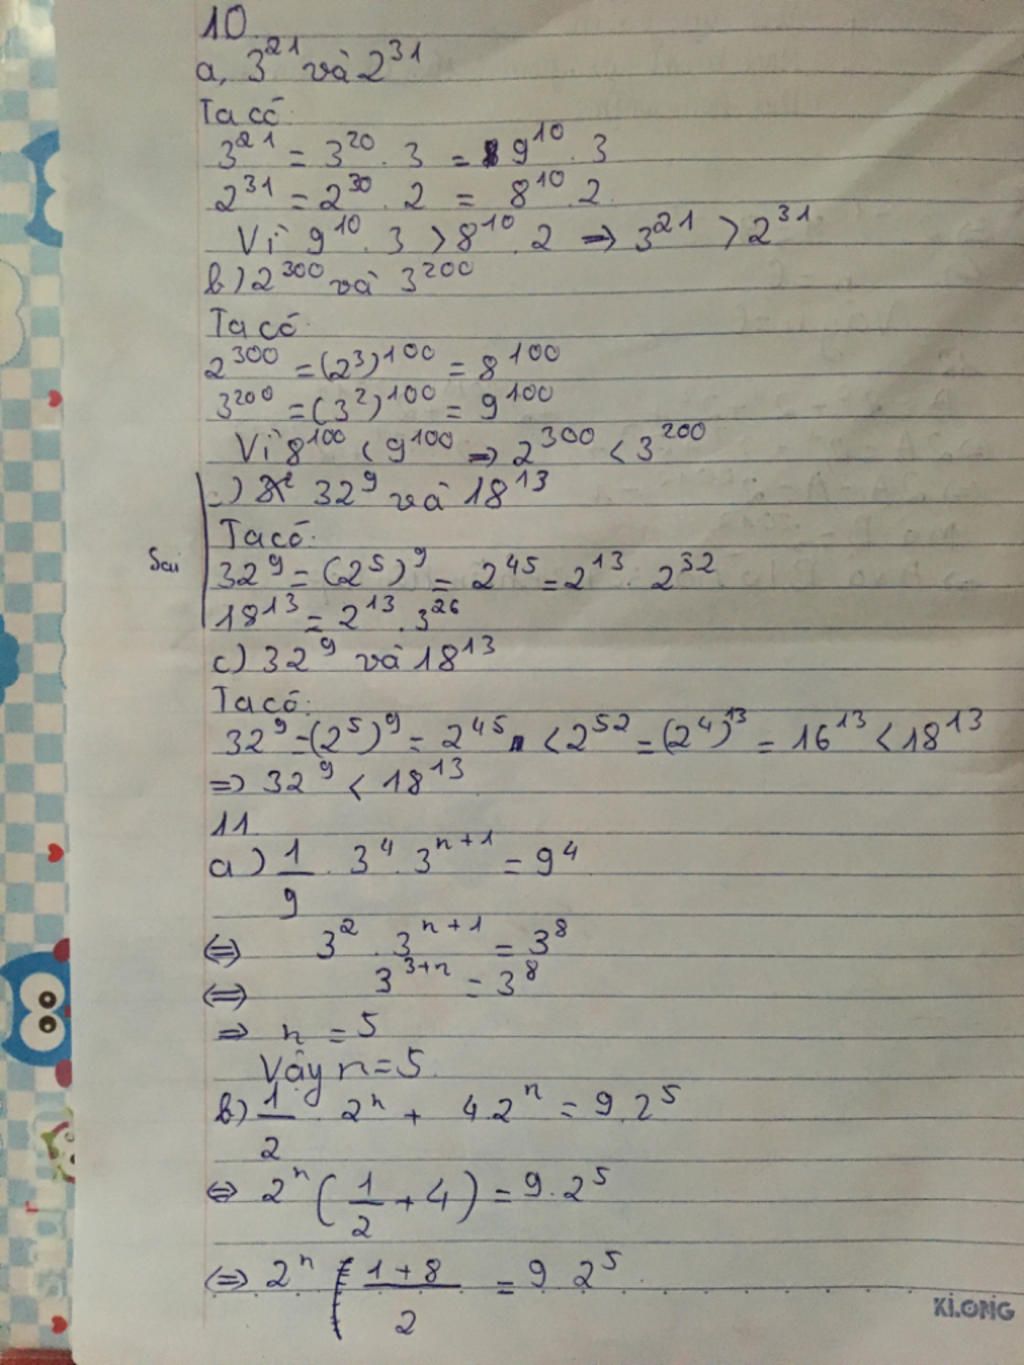 10
a, 3²¹ và 2³¹
Ta có
3²¹ = 3²⁰ . 3 = 9¹⁰ . 3
2³¹ = 2³⁰ . 2 = 8¹⁰ . 2
Vì 9¹⁰ . 3 > 8¹⁰ . 2 => 3²¹ > 2³¹
b) 2³⁰⁰ và 3²⁰⁰
Ta có:
2³⁰⁰ = (2³)¹⁰⁰ = 8¹⁰⁰
3²⁰⁰ = (3²)¹⁰⁰ = 9¹⁰⁰
Vì 8¹⁰⁰ < 9¹⁰⁰ => 2³⁰⁰ < 3²⁰⁰
c) 32⁹ và 18¹³
Ta có:
Sai
32⁹ = (2⁵)⁹ = 2⁴⁵ = 2¹³ . 2³²
18¹³ = 2¹³ . 3²⁶
c) 32⁹ và 18¹³
Ta có:
32⁹ = (2⁵)⁹ = 2⁴⁵ < 2⁵² = (2⁴)¹³ = 16¹³ < 18¹³
=> 32⁹ < 18¹³
11
a) 1/9 . 3⁴ . 3ⁿ⁺¹ = 9⁴
<=> 3² . 3ⁿ⁺¹ = 3⁸
<=> 3³⁺ⁿ = 3⁸
=> n = 5
Vậy n = 5.
b) 1/2 . 2ⁿ + 4.2ⁿ = 9.2⁵
<=> 2ⁿ (1/2 + 4) = 9.2⁵
<=> 2ⁿ (1+8)/2 = 9.2⁵
KLONG